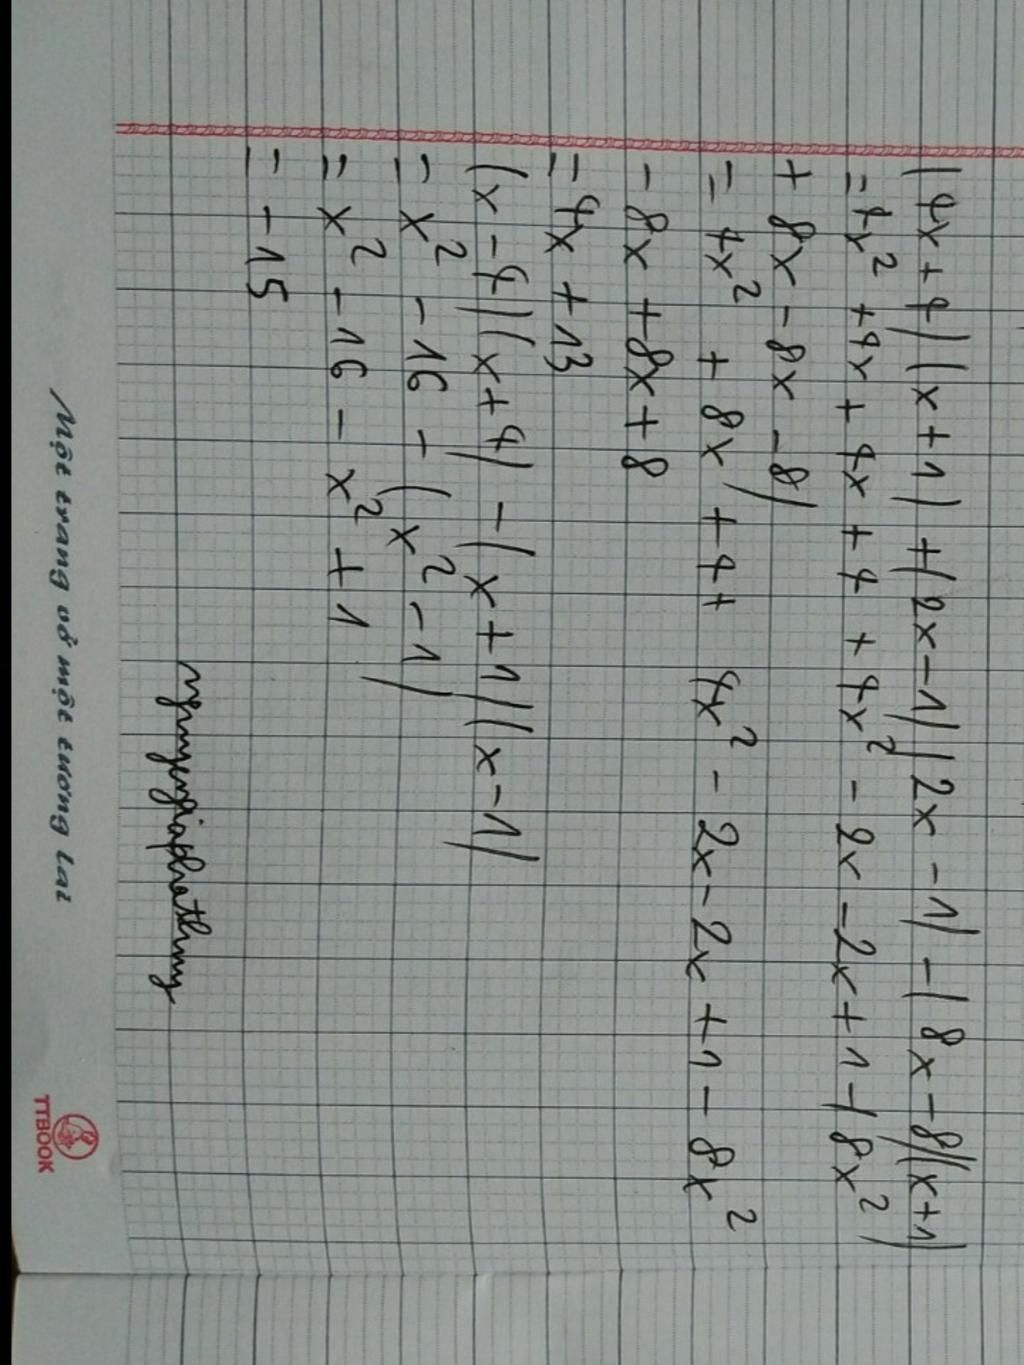 (4x+4)(x+1)+(2x-1)(2x-1)-(8x-8)(x+1)
=4x²+4x+4x+4+4x²-2x-2x+1-(8x²
+8x-8x-8)
=4x²+8x+4+4x²-2x-2x+1-8x²
-8x+8x+8
=4x+13
(x-4)(x+4)-(x+1)(x-1)
=x²-16-(x²-1)
=x²-16-x²+1
=-15
Một trang vở một tương lai
TTBOOK